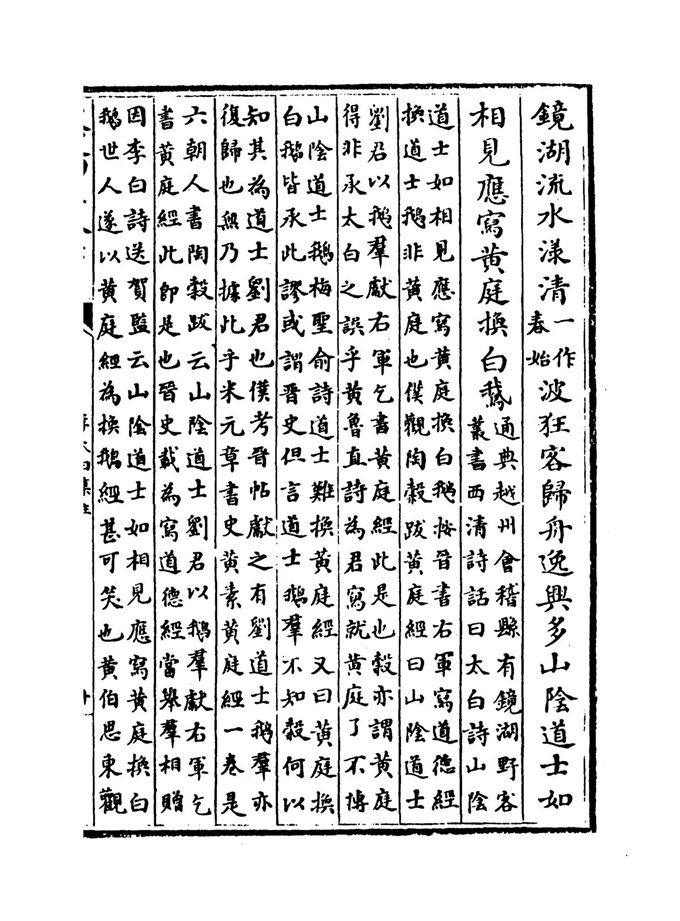 鏡湖流水漾清一作春始波狂客歸舟逸興多山陰道士如
相見應寫黃庭換白鵝通典越州會稽縣有鏡湖野客
叢書西清詩話曰太白詩山陰
道士如相見應寫黃庭換白鵝按晉書右軍寫道德經
換道士鵝非黃庭也僕觀陶穀跋黃庭經曰山陰道士
劉君以鵝羣獻右軍乞書黃庭經此是也穀亦謂黃庭
得非承太白之誤乎黃魯直詩為君寫就黃庭了不博
山陰道士鵝梅聖俞詩道士難換黃庭經又曰黃庭換
白鵝皆承此謬或謂晉史但言道士鵝羣不知穀何以
知其為道士劉君也僕考晉帖獻之有劉道士鵝羣亦
復歸也無乃據此乎米元章書史黃素黃庭經一卷是
六朝人書陶穀跋云山陰道士劉君以鵝羣獻右軍乞
書黃庭經此即是也晉史載為寫道德經當舉羣相贈
因李白詩送賀監云山陰道士如相見應寫黃庭換白
鵝世人遂以黃庭經為換鵝經甚可笑也黃伯思東觀